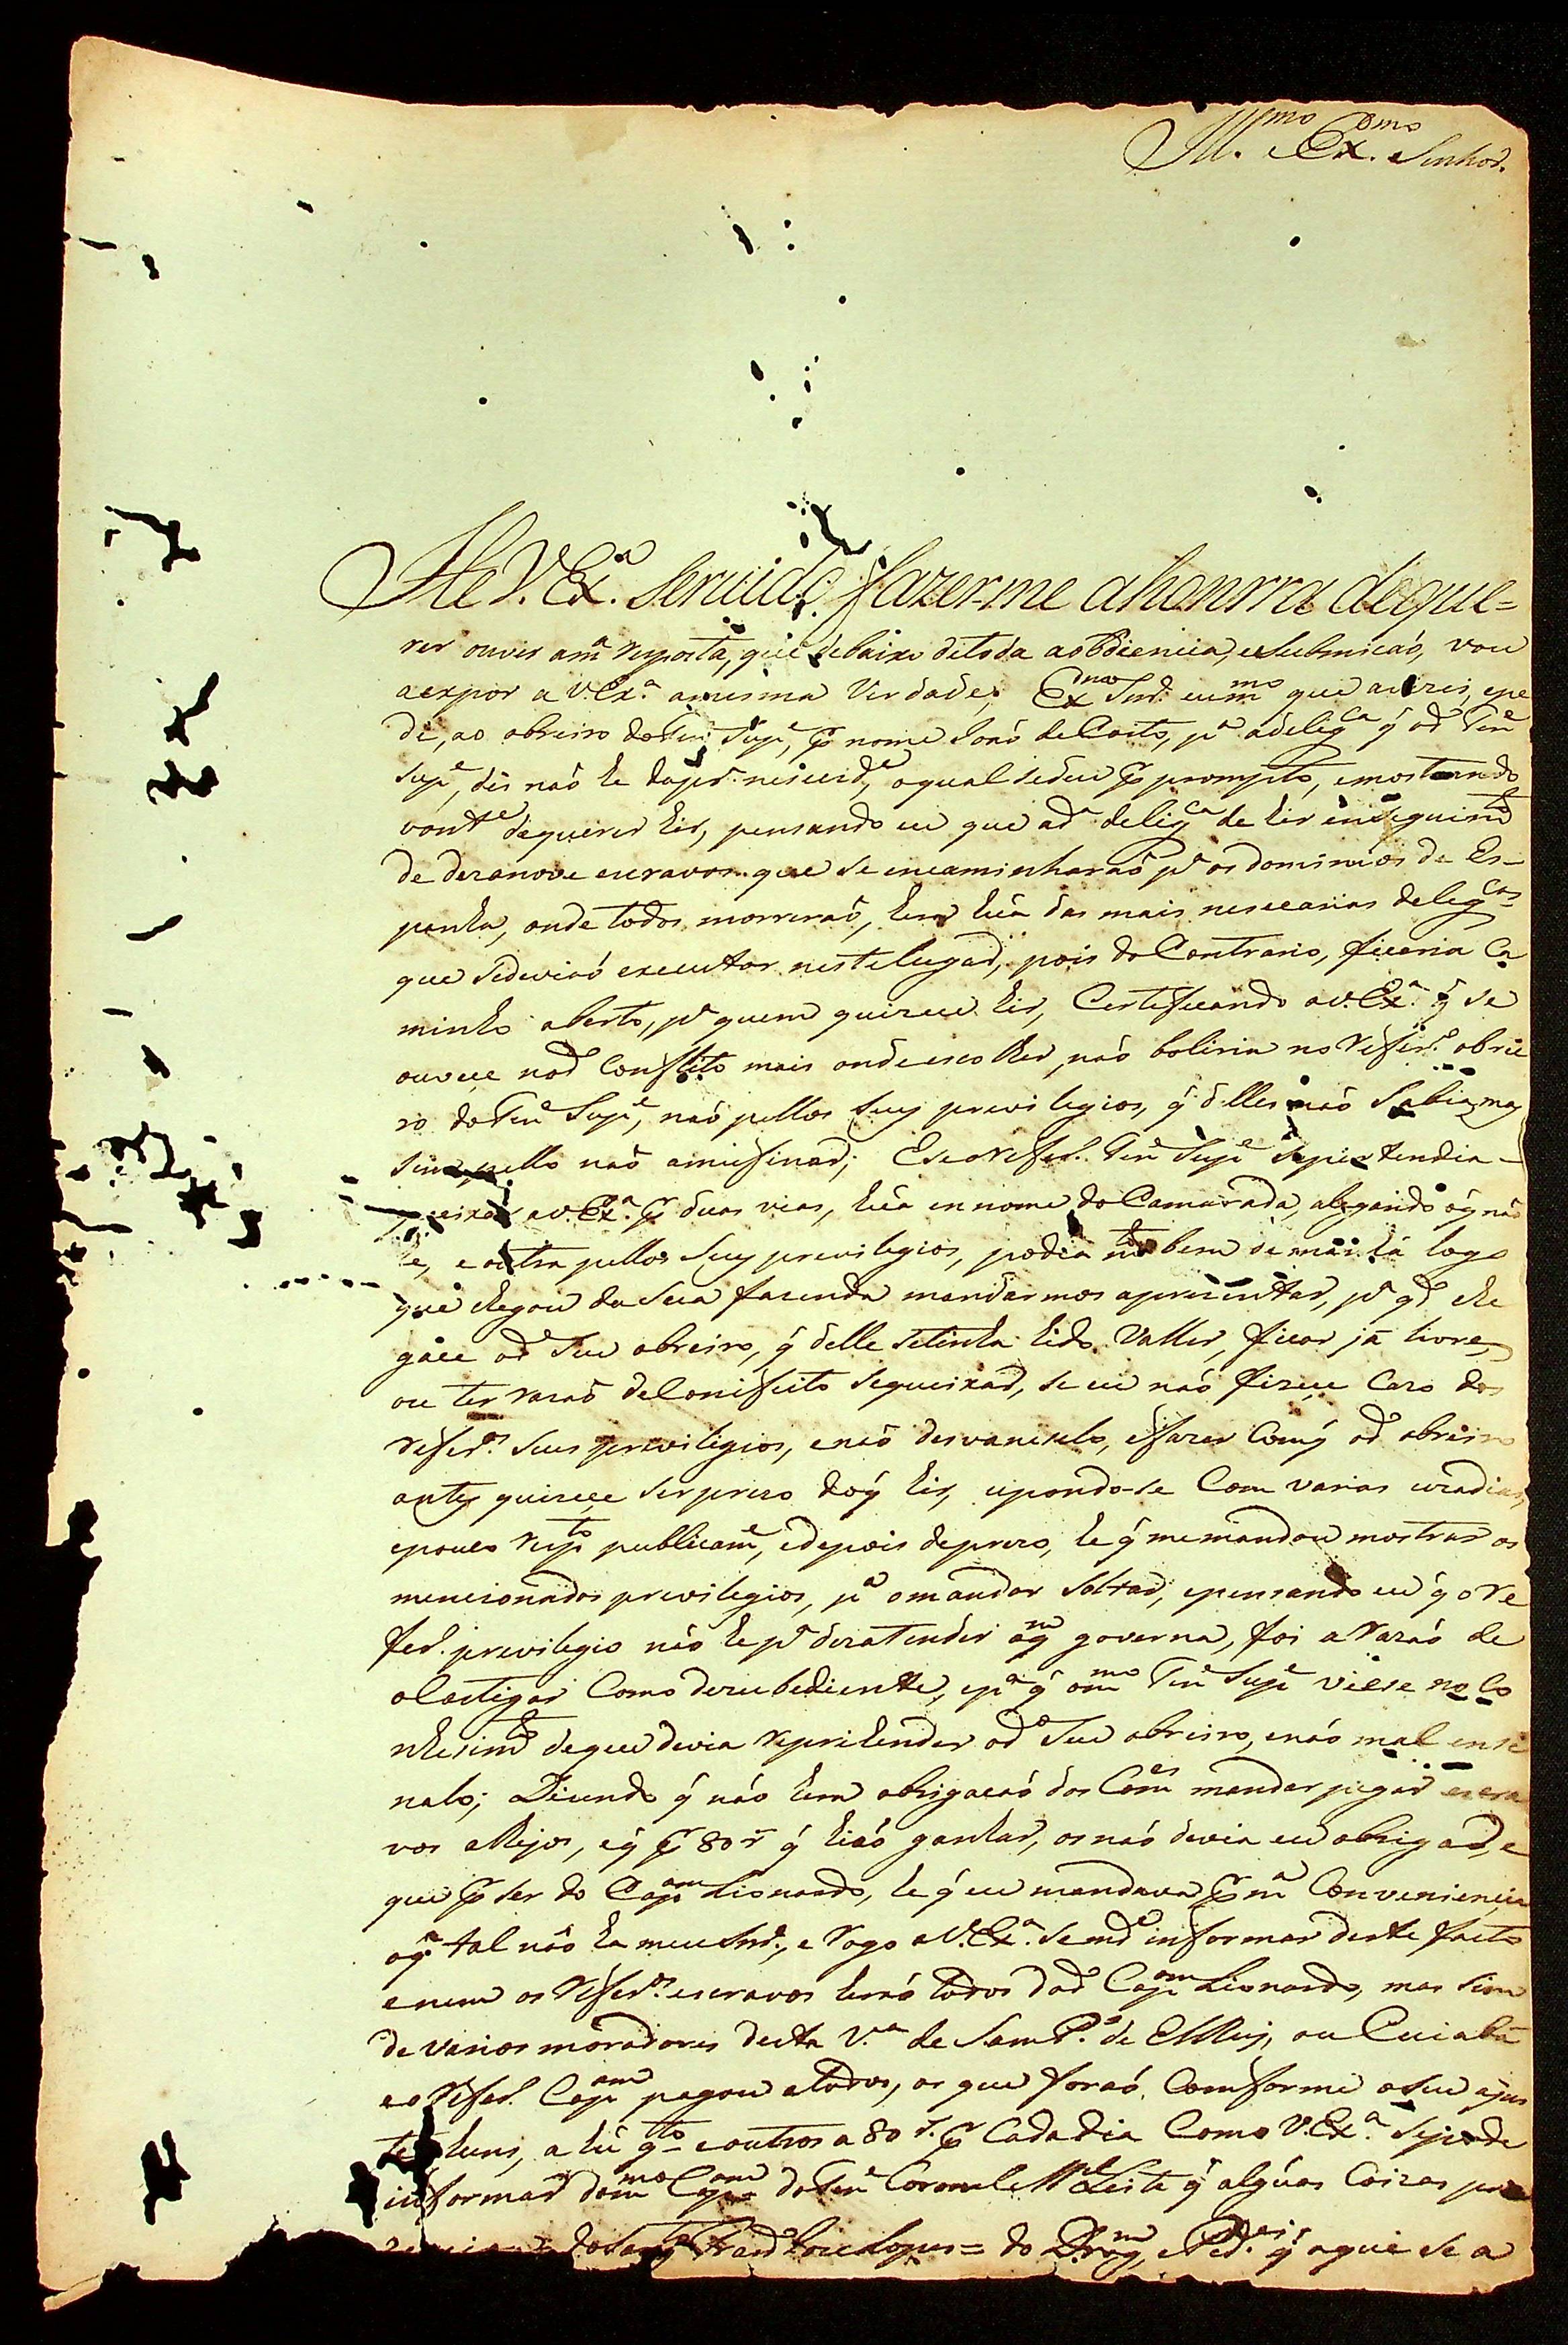 Ill.mo Ex.mo Senhor.
He V. Ex.a Seruido fazer-me a honrra de que=
rer ouvir a m.a reposta, que debaixo de toda a obdiencia, e Submicaó, vou
a expor a V. Ex.a a mesma Verdade; Ex.mo Snr. eu m.mo que avizei, e pe
di, ao obreiro do Ten.e Sup.e, por nome Joaó de Casto, p.a a delig.ca q̃ o d.o Ten.e
Sup.e, dis naó he da pr. nescecid.e, o qual se deu por prompto, e mostrando
vont.e de querer hir, pensando eu que a d.a delig.ca de hir em seguim.to
de dezanove escravos que se encaminharaó p.a os dominios de Es-
panha, onde todos morreraó, hera huã das mais nescecarias delig.cas
que se deviaó executar neste lugar, pois do Contrario, ficaria Ca
minho aberto, p.a quem quizece hir, Certeficando a V. Ex.a q̃ se
ouvece no d.o Conflito mais onde escolher, naó boliria no Refer.o obrei
ro do Ten.e Sup.e, naó pellos Seus previlegios, q̃ delles naó Sabia, mas
sim pello naó amufinar; E se o Refer. Ten.e Sup.e pertendia
queixar a V. Ex.a por duas vias, huã en nome do Camarada, alegando o q̃ naó
he, e outra pellos Seus previlegios, podia tobem de mais lá logo
que chegou da Sua fazenda mandarmos aprezentar, p.a q.do che
gace o d.o Seu obreiro, q̃ delle se tinha hido Valler, ficar já livre,
ou ter razaó de Conisseito se queixar, se eu naó fizece Cazo dos
refer.os Seus previligios, e naó desvanecelo, e fazer Comq̃ o d.o obreiro
antes quizece ser prezo do q̃ hir, upondo-se Com varias
e pouco resp.to publicam.e, e depois de prezo, he q̃ me mandou mostrar os
mencionados previlegios, p.a o mandar Soltar; e pensando eu q̃ o Re
fer. previlegio náo he p.a dezatender a q.m governa, foi a razaó de
o Castigar Como dezubediente, e p.a q̃ o m.mo Ten.e Sup.e viese no Co
nhesim.to de que devia reprihender o d.o Seu obreiro, e naó mal ensi
nalo; Dicendo q̃ náo hera obrigacaó dos Com.es mandar pegar escra
vos alheios, e q̃ por 80 r.s q̃ hiaó ganhar, os naó devia eu obrigar, e
que por ser do Cap.am Lionardo, he q̃ eu mandava por m.a Conveniencia
o q̃ tal nâo ha meu Snr., e rogo a V. Ex.a Se m.de informar deste facto
e nem os Refer.os escravos heraó todos do d.o Cap.am Lionardo, mas sim
de varios moradores desta V.a de Sam P.o de ElRey, ou Cuiabá
e o Refer. Cap.am pagou a todos, os que foraó, Comforme o Seu ajus
te, huns, a hú q.to e outros a 80 r.s por Cada dia Como V. Ex.a se pode
informar do m.mo Cap.am do Ten.e Coronel M.el Leite q̃ algúas Coizas pre
do Sarg.to Fran.co Lopes = do Drag.m, e Ped.es q̃ aqui se a